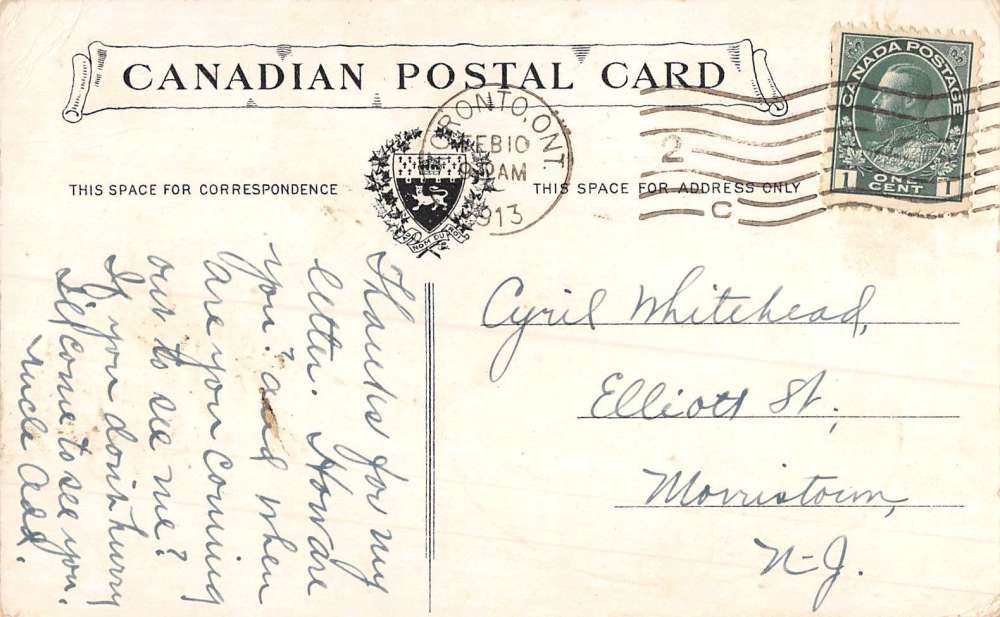 CANADIAN POSTAL CARD
CANADA POSTAGE
1 ONE CENT 1
TORONTO, ONT.
FEB 10
AM
1913
2
C
THIS SPACE FOR CORRESPONDENCE
THIS SPACE FOR ADDRESS ONLY
Thanks for my
letter. How are
you? and when
are you coming
over to see me?
If you don't hurry
I'll come to see you.
Uncle Add.
Cyril Whitehead,
Elliott St.,
Morristown,
N-J.